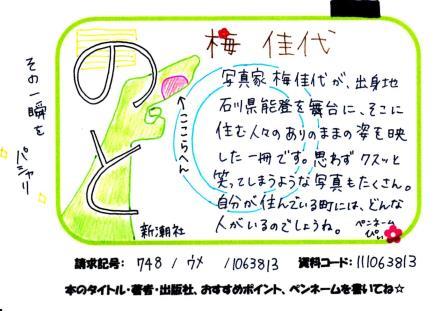 のと
梅 佳代
写真家 梅佳代が、出身地
石川県能登を舞台に、そこに
住む人々のありのままの姿を映
した一冊です。思わずクスッと
笑ってしまうような写真もたくさん。
自分が住んでいる町には、どんな
人がいるのでしょうね。
ペンネーム
ぴぃ
←ここらへん
その一瞬を
パシャリ
新潮社
請求記号: 748 / ウメ / 1063813 資料コード: 111063813
本のタイトル・著者・出版社、おすすめポイント、ペンネームを書いてね☆